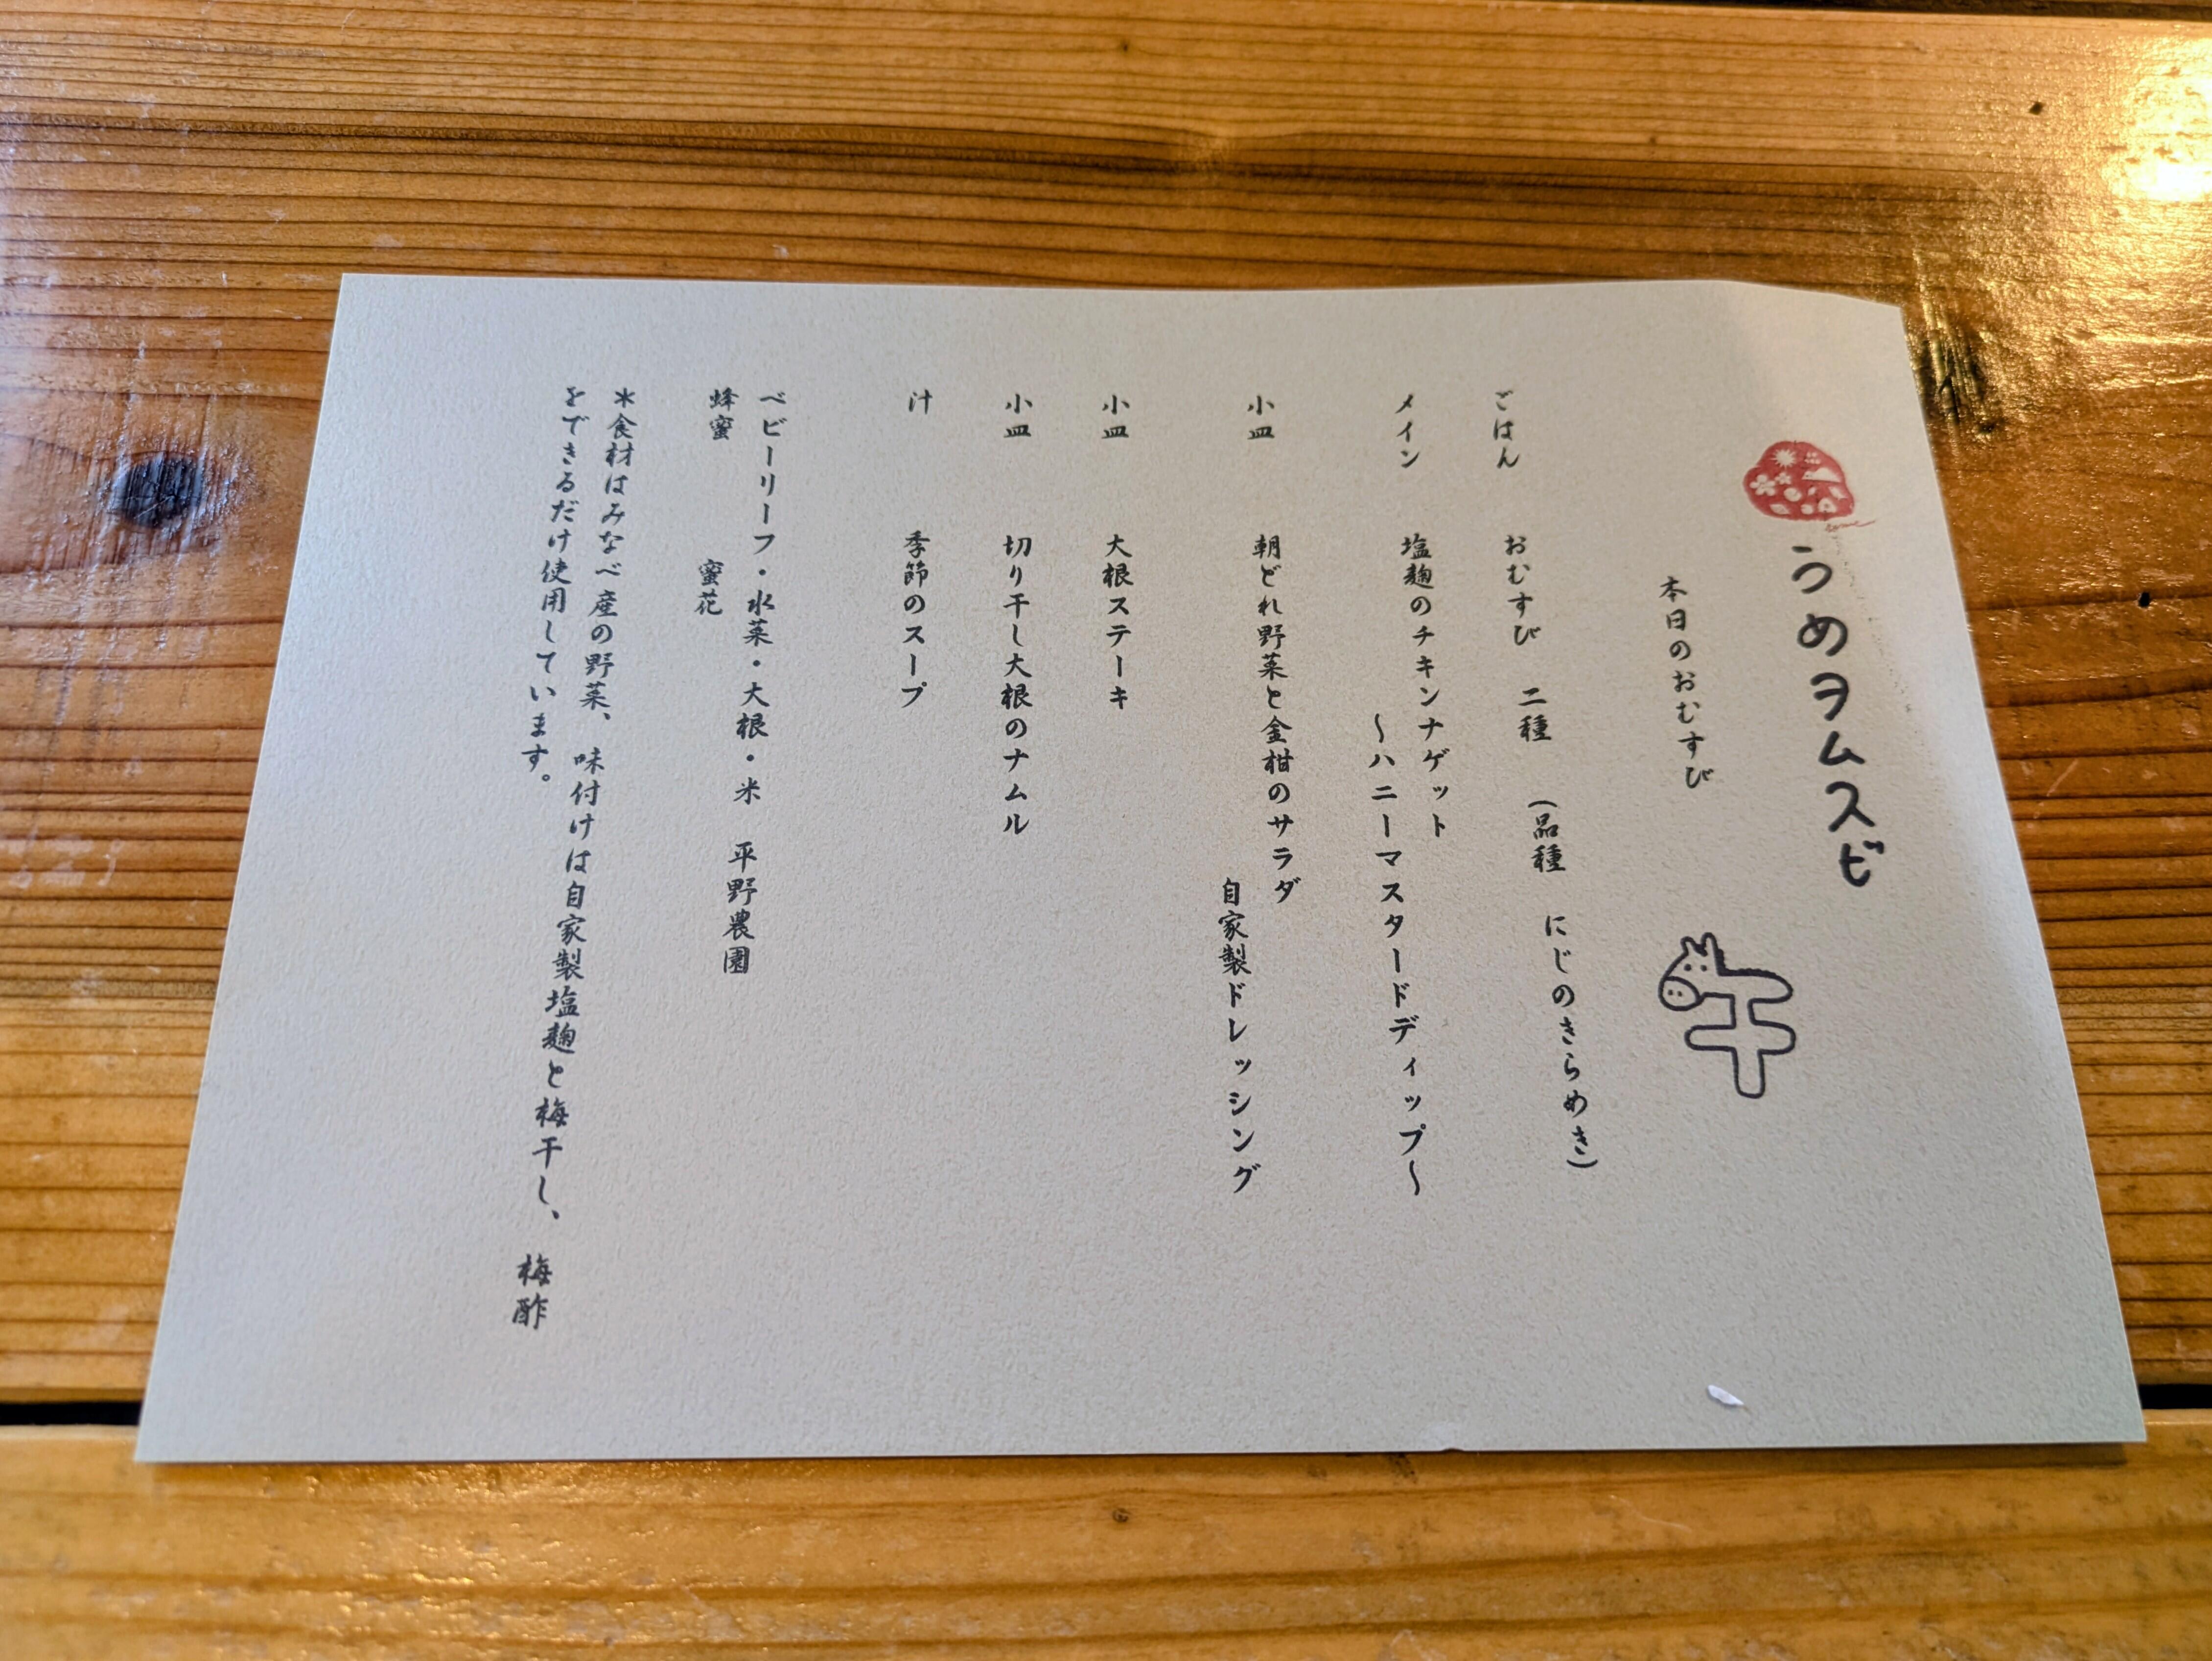 うめヲムスビ
本日のおむすび
午
ごはん　おむすび　二種　(品種　にじのきらめき)
メイン　塩麹のチキンナゲット
～ハニーマスタードディップ～
小皿　朝どれ野菜と金柑のサラダ
自家製ドレッシング
小皿　大根ステーキ
小皿　切り干し大根のナムル
汁　季節のスープ
ベビーリーフ・水菜・大根・米　平野農園
蜂蜜　蜜花
＊食材はみなべ産の野菜、味付けは自家製塩麹と梅干し、梅酢
をできるだけ使用しています。